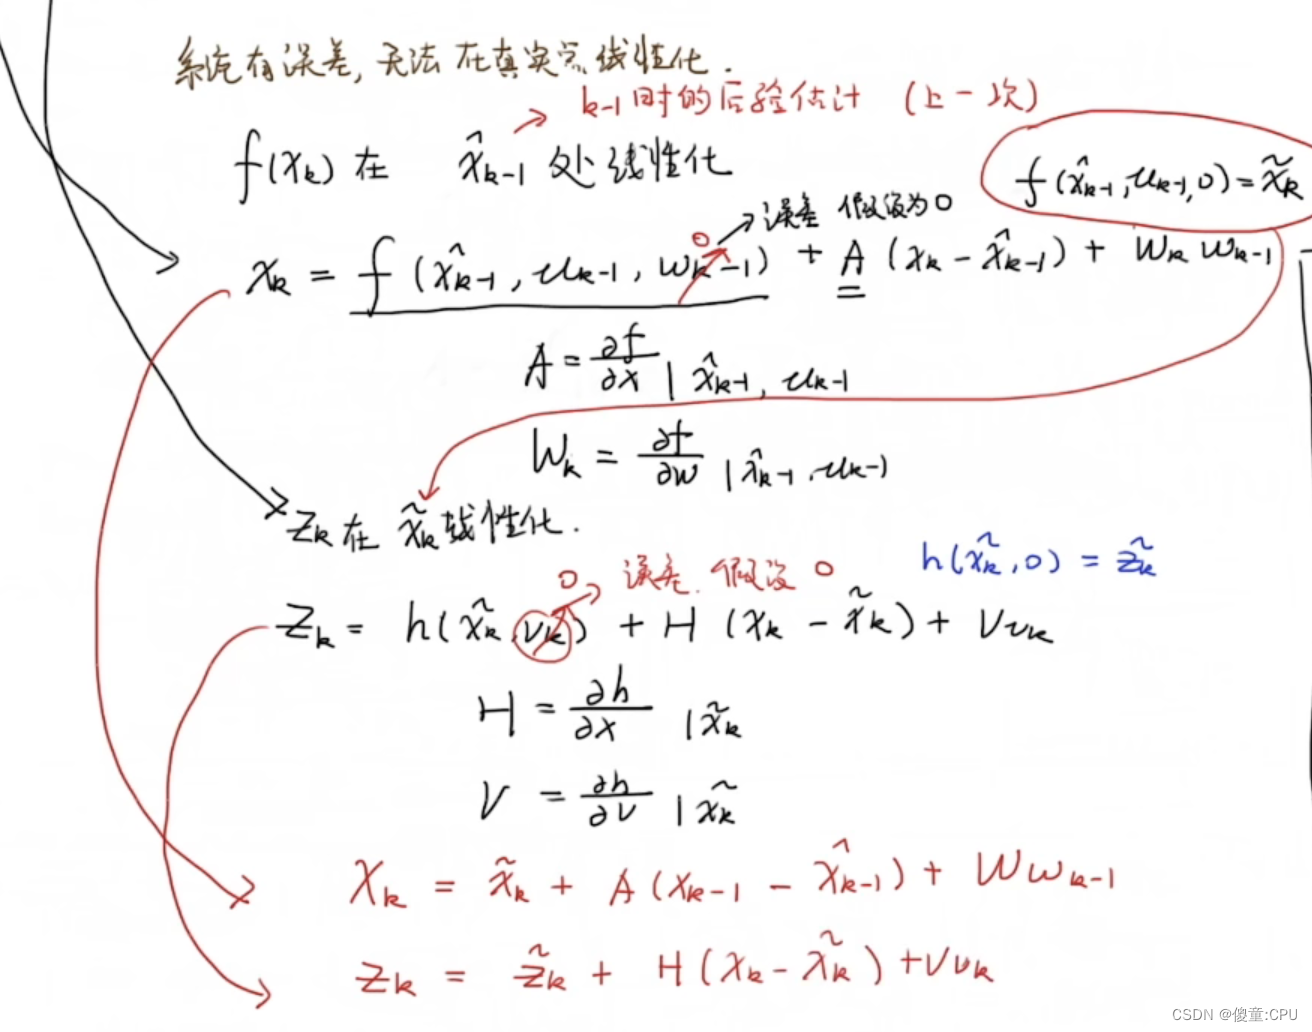 系统有误差, 无法在真实点线性化.
k-1时的后验估计 (上一次)
f(x_k) 在 x̂_{k-1} 处线性化
f(x̂_{k-1}, u_{k-1}, 0) = x̃_k
0 误差 假设为0
x_k = f(x̂_{k-1}, u_{k-1}, w_{k-1}) + A(x_k - x̂_{k-1}) + W_k w_{k-1}
A = ∂f/∂x | x̂_{k-1}, u_{k-1}
W_k = ∂f/∂w | x̂_{k-1}, u_{k-1}
z_k 在 x̃_k 线性化.
h(x̃_k, 0) = z̃_k
0 误差. 假设 0
z_k = h(x̃_k, v_k) + H(x_k - x̃_k) + V v_k
H = ∂h/∂x | x̃_k
V = ∂h/∂v | x̃_k
x_k = x̃_k + A(x_{k-1} - x̂_{k-1}) + W w_{k-1}
z_k = z̃_k + H(x_k - x̃_k) + V v_k
CSDN @傻童:CPU